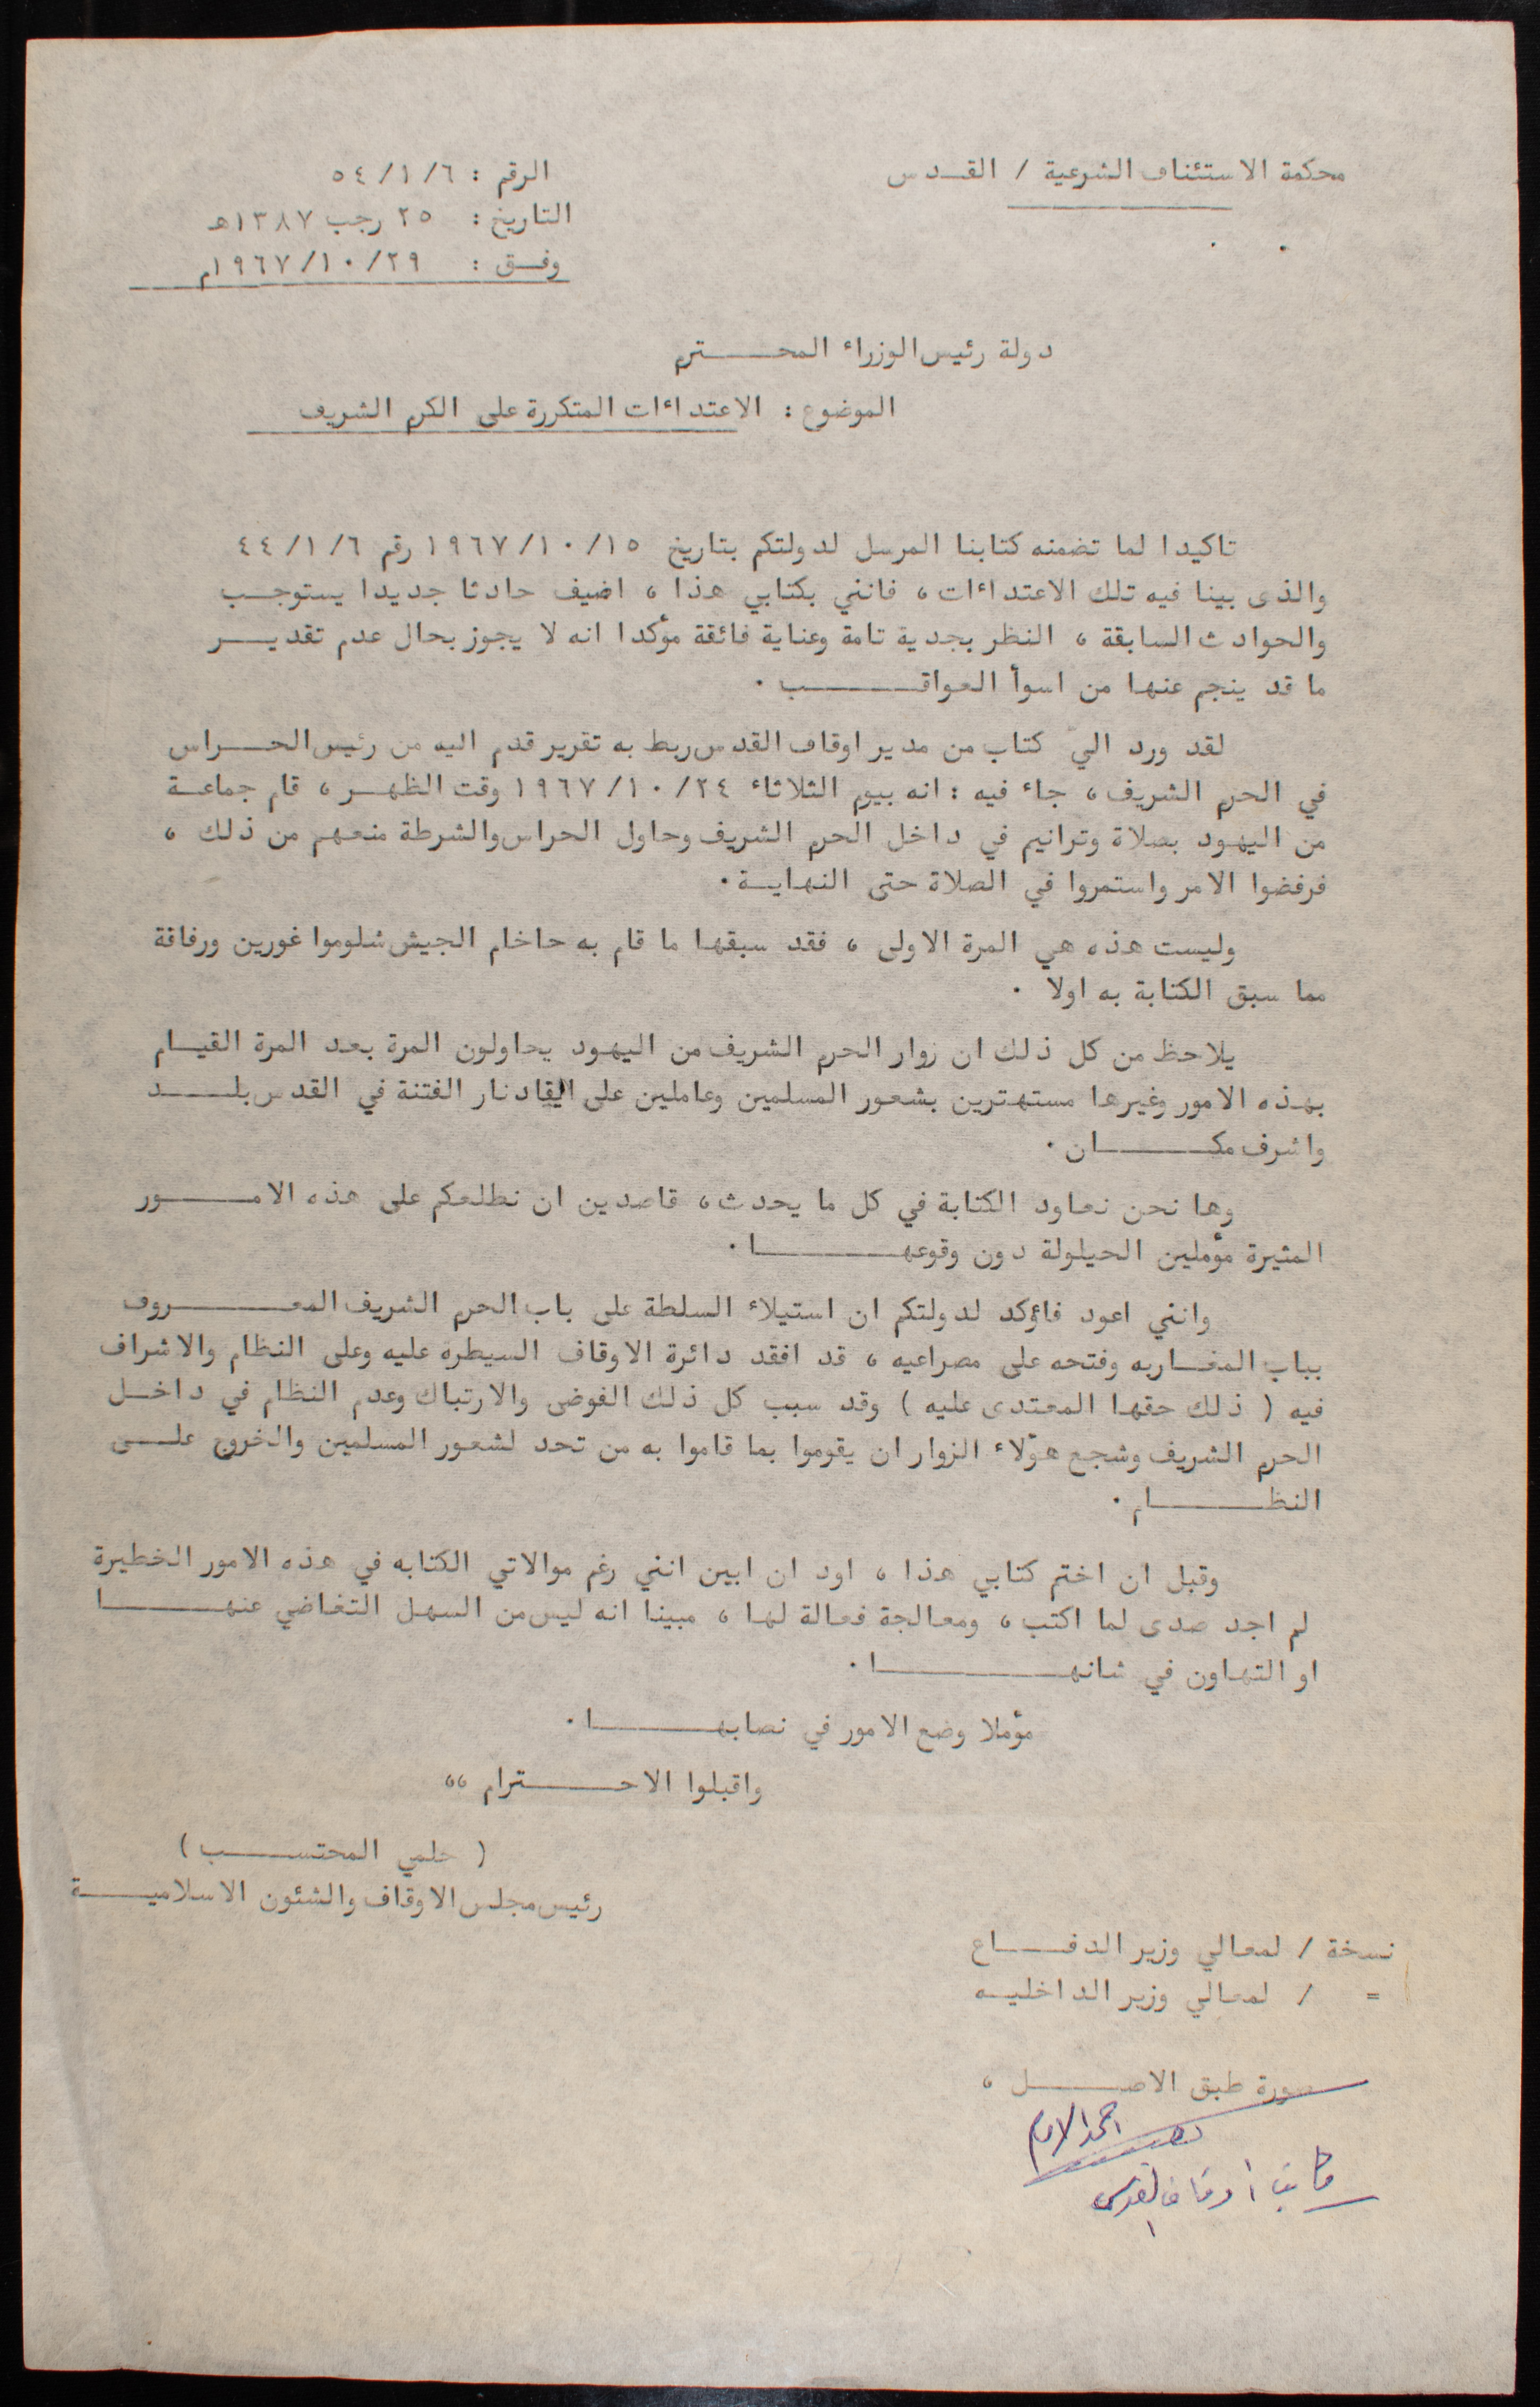 محكمة الاستئناف الشرعية / القدس
الرقم : ٥٤/١/٦
التاريخ : ٢٥ رجب ١٣٨٧هـ
وفق : ١٩٦٧/١٠/٢٩م
دولة رئيس الوزراء المحترم
الموضوع : الاعتداءات المتكررة على الكرم الشريف
تاكيدا لما تضمنه كتابنا المرسل لدولتكم بتاريخ ١٩٦٧/١٠/١٥ رقم ٤٤/١/٦
والذى بينا فيه تلك الاعتداءات ، فانني بكتابي هذا ، اضيف حادثا جديدا يستوجب
والحوادث السابقة ، النظر بجدية تامة وعناية فائقة مؤكدا انه لا يجوز بحال عدم تقدير
ما قد ينجم عنها من اسوأ العواقب .
لقد ورد الي كتاب من مدير اوقاف القدس ربط به تقرير قدم اليه من رئيس الحراس
في الحرم الشريف ، جاء فيه : انه بيوم الثلاثاء ١٩٦٧/١٠/٢٤ وقت الظهر ، قام جماعة
من اليهود بصلاة وترانيم في داخل الحرم الشريف وحاول الحراس والشرطة منعهم من ذلك ،
فرفضوا الامر واستمروا في الصلاة حتى النهاية .
وليست هذه هي المرة الاولى ، فقد سبقها ما قام به حاخام الجيش شلوموا غورين ورفاقة
مما سبق الكتابة به اولا .
يلاحظ من كل ذلك ان زوار الحرم الشريف من اليهود يحاولون المرة بعد المرة القيام
بهذه الامور وغيرها مستهترين بشعور المسلمين وعاملين على ايقاد نار الفتنة في القدس بلد
واشرف مكان .
وها نحن نعاود الكتابة في كل ما يحدث ، قاصدين ان نطلعكم على هذه الامور
المثيرة مؤملين الحيلولة دون وقوعها .
وانني اعود فاؤكد لدولتكم ان استيلاء السلطة على باب الحرم الشريف المعروف
بباب المغاربه وفتحه على مصراعيه ، قد افقد دائرة الاوقاف السيطره عليه وعلى النظام والاشراف
فيه ( ذلك حقها المعتدى عليه ) وقد سبب كل ذلك الفوضى والارتباك وعدم النظام في داخل
الحرم الشريف وشجع هؤلاء الزوار ان يقوموا بما قاموا به من تحد لشعور المسلمين والخروج على
النظام .
وقبل ان اختم كتابي هذا ، اود ان ابين انني رغم موالاتي الكتابه في هذه الامور الخطيرة
لم اجد صدى لما اكتب ، ومعالجة فعالة لها ، مبينا انه ليس من السهل التغاضي عنها
او التهاون في شانها .
مؤملا وضع الامور في نصابها .
واقبلوا الاحترام ،،
( حلمي المحتسب )
رئيس مجلس الاوقاف والشئون الاسلامية
نسخة / لمعالي وزير الدفاع
= / لمعالي وزير الداخليه
صورة طبق الاصل ،
كاتب اوقاف القدس